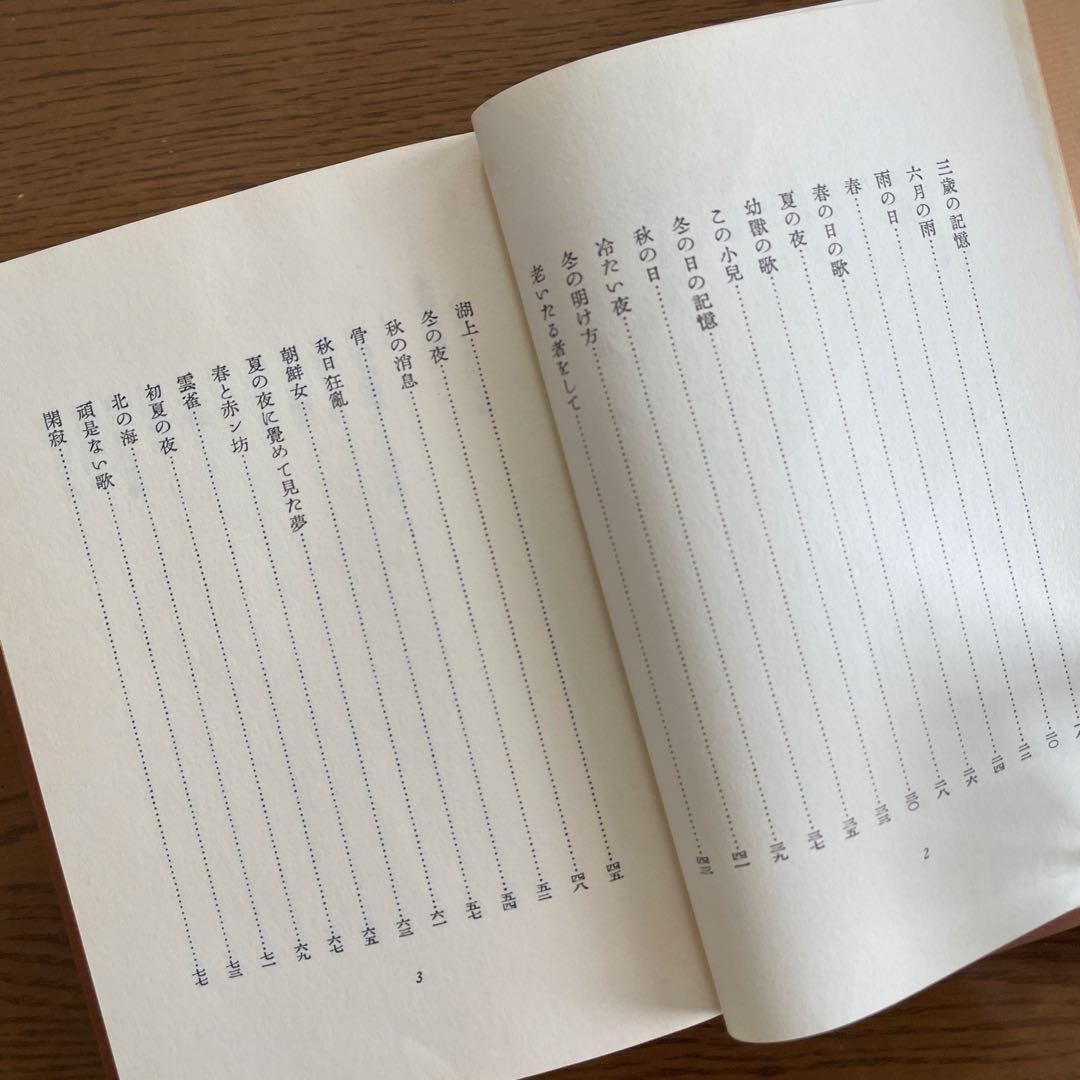 三歳の記憶
六月の雨……二〇
雨の日……二二
春……二四
春の日の歌……二六
夏の夜……二八
幼獸の歌……三〇
この小兒……三三
冬の日の記憶……三五
秋の日……三七
冷たい夜……三九
冬の明け方……四一
老いたる者をして……四三
2
湖上……四五
冬の夜……四八
秋の消息……五二
骨……五四
秋日狂亂……五七
朝鮮女……六一
夏の夜に覺めて見た夢……六三
春と赤ン坊……六五
雲雀……六七
初夏の夜……六九
北の海……七一
頑是ない歌……七三
閑寂……七七
3